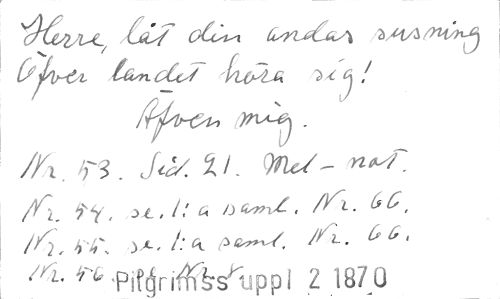 Herre, låt din andas susning
Öfver landet höra sig!
Äfven mig.
Nr. 53. Sid. 21. Mel-not.
Nr. 54. se. 1:a saml. Nr. 66.
Nr. 55. se. 1:a saml. Nr. 66.
Nr. 56 Nr.
Pilgrimss uppl 2 1870